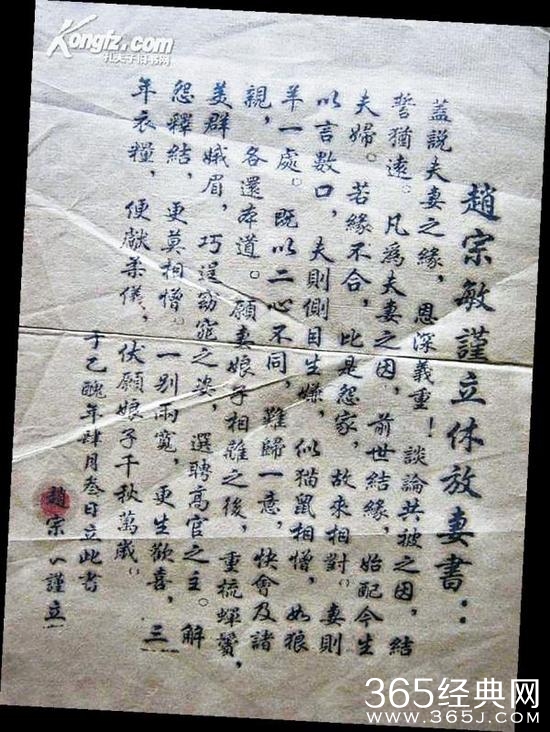 Kongfz.com
孔夫子旧书网
趙宗敏謹立休放妻書：
蓋說夫妻之緣，恩深義重！談論共被之因，結
誓猶遠。凡爲夫妻之因，前世結緣，始配今生
夫婦。若緣不合，比是怨家，故來相對。妻則
以言數口，夫則側目生嫌，似猫鼠相憎，如狼
羊一處。既以二心不同，難歸一意，快會及諸
親，各還本道。願妻娘子相離之後，重梳蟬鬢，
美群娥眉，巧逞窈窕之姿，選聘高官之主。解
怨釋結，更莫相憎。一别兩寬，更生歡喜，三
年衣糧，便獻柔儀，伏願娘子千秋萬歲。
于乙醜年肆月叁日立此書
趙宗謹立
365经典网
WWW.365J.COM